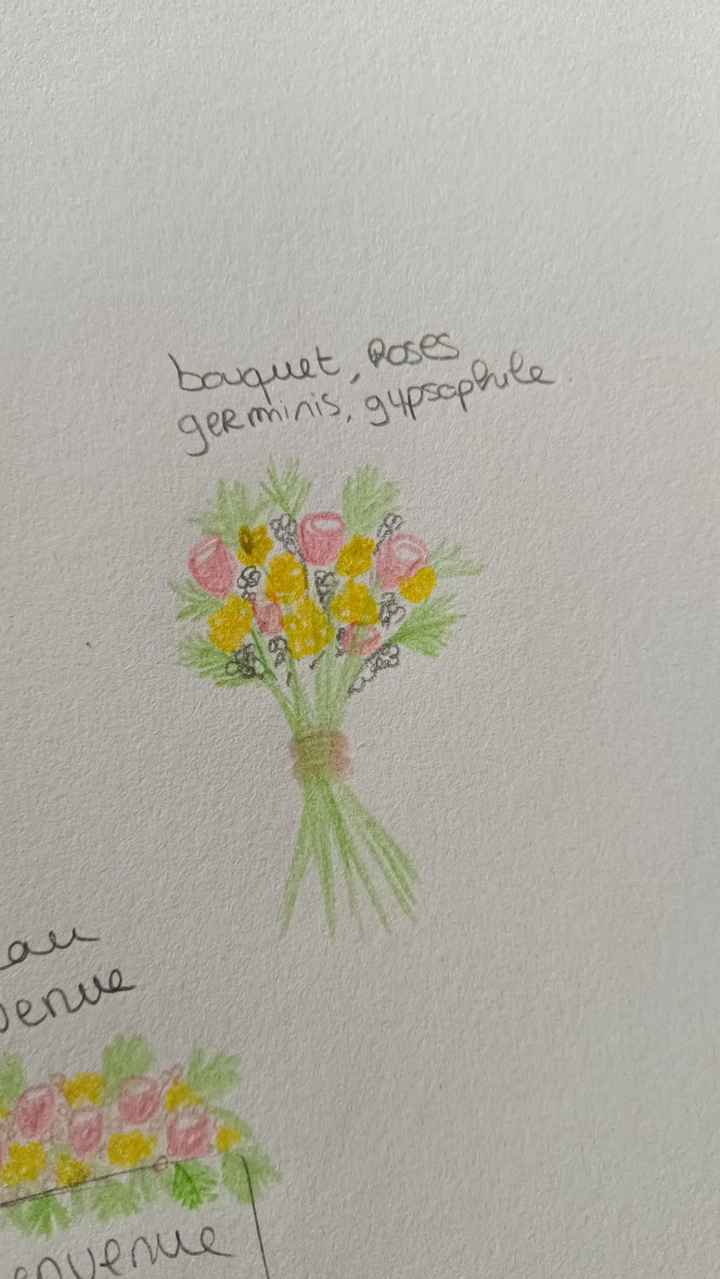 bouquet, Roses
germinis, gypsophile.
eau
venue
envenue